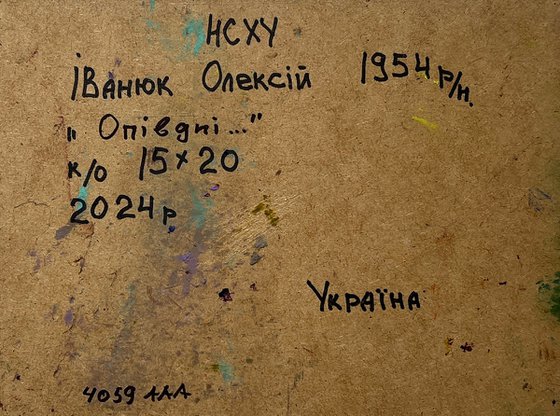 НСХУ
Іванюк Олексій 1954 р/н.
„Опівдні..."
к/о 15×20
2024р
Україна
4059 ААА